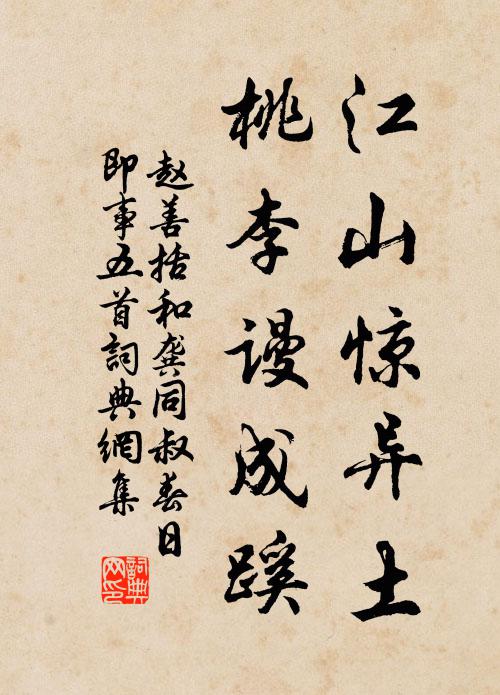 江山惊异土
桃李谩成蹊
赵善括和龚同叔春日
即事五首詞典網集
詞典
网印